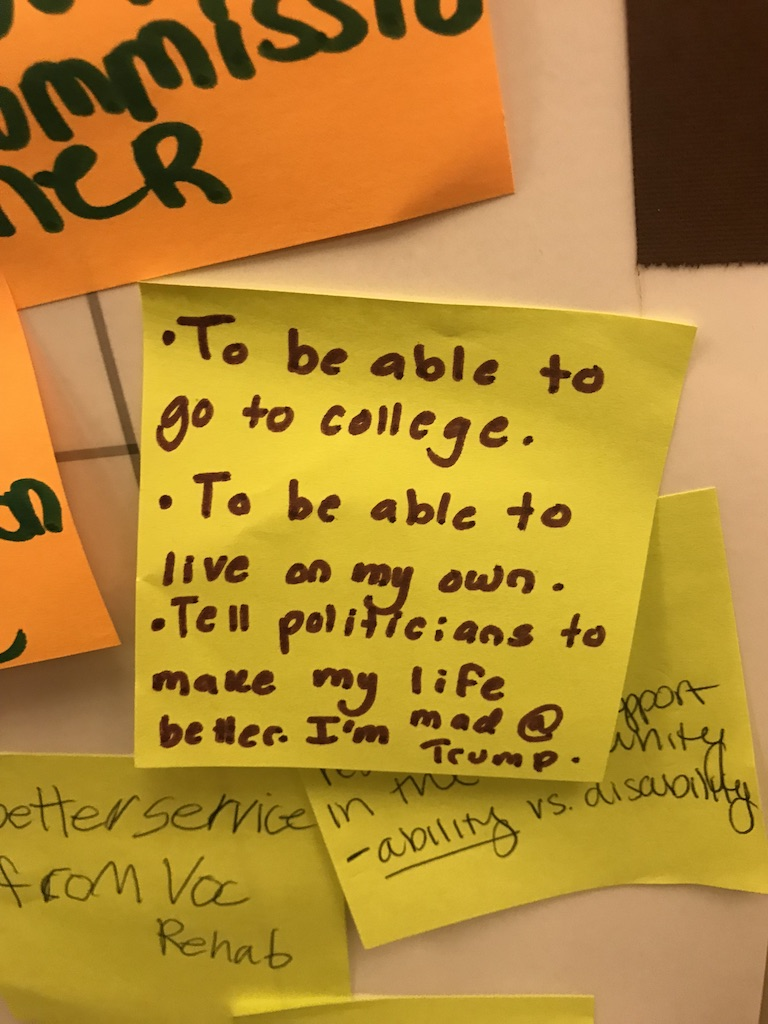 ommissio
ner
•To be able to
go to college.
• To be able to
live on my own.
•Tell politicians to
make my life
better. I'm mad @
Trump.
in the
-ability vs. disability
better service
from Voc
Rehab